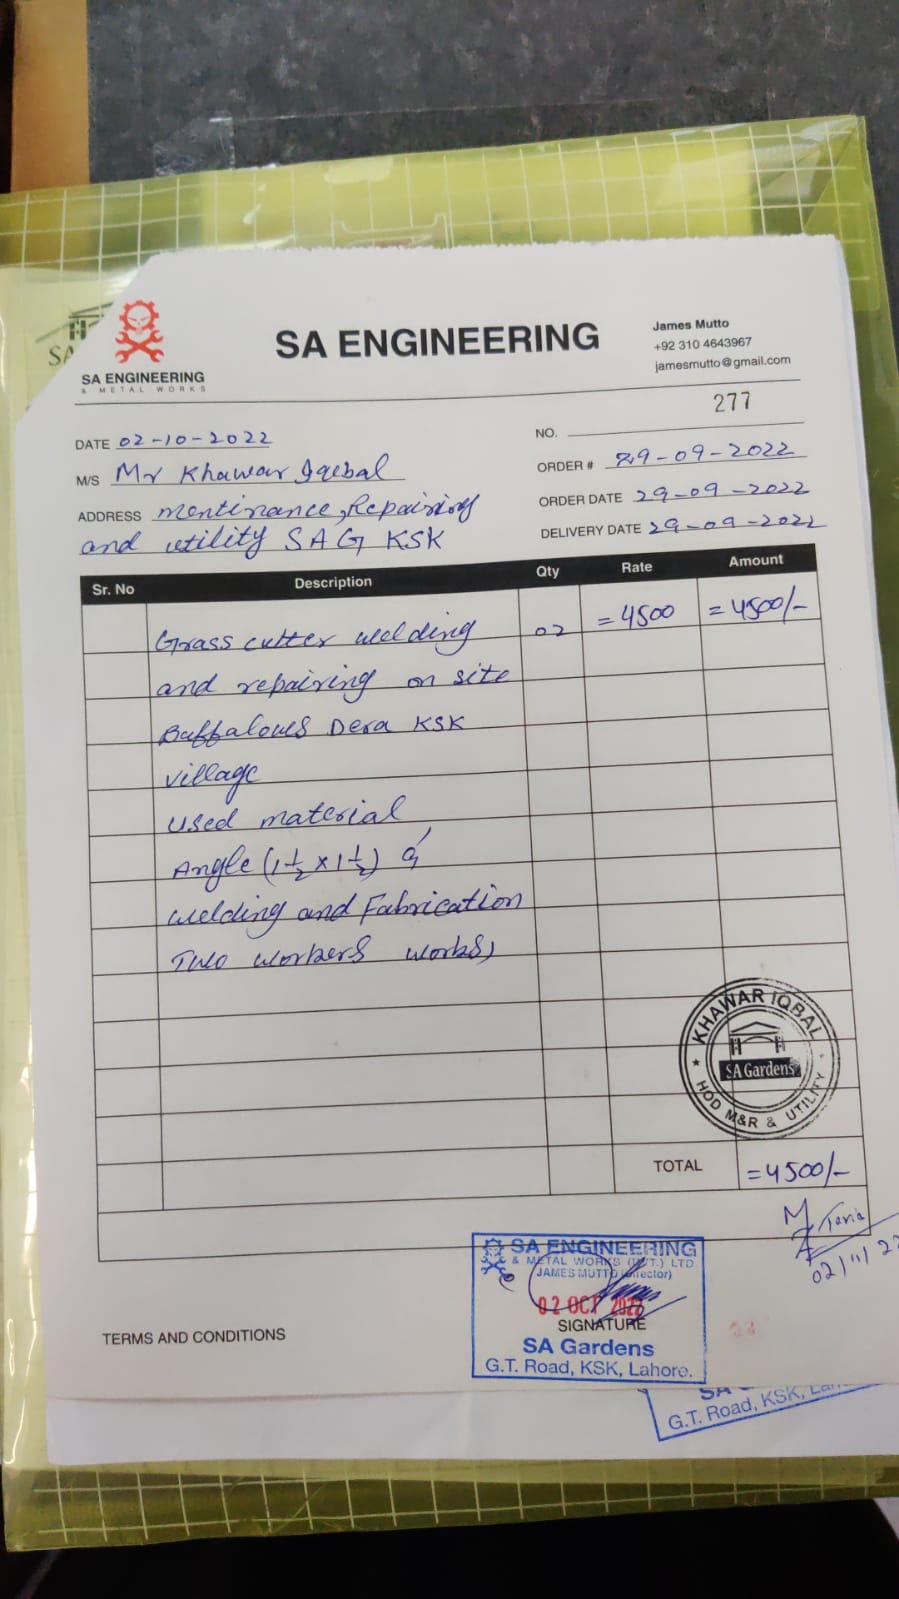 SA ENGINEERING
& METAL WORKS
SA ENGINEERING
James Mutto
+92 310 4643967
jamesmutto@gmail.com
277
DATE 02-10-2022
NO.
M/S Mr Khawar Iqebal
ORDER # 29-09-2022
ADDRESS mentinance, Repairing
ORDER DATE 29-09-2022
and utility SAG KSK
DELIVERY DATE 29-09-2022
Sr. No Description Qty Rate Amount
Grass cutter welding 02 =4500 =4500/-
and repairing on site
Buffaloues Dera KSK
village
Used material
Angle (1 1/2 x 1 1/2)
welding and Fabrication
Two workers works,
KHAWAR IQBAL
SA Gardens
HOD M&R & UTILITY
TOTAL =4500/-
02/11/22
SA ENGINEERING
& METAL WORKS (PVT.) LTD
JAMES MUTTO (Director)
02 OCT 2022
SIGNATURE
SA Gardens
G.T. Road, KSK, Lahore.
TERMS AND CONDITIONS
G.T. Road, KSK,